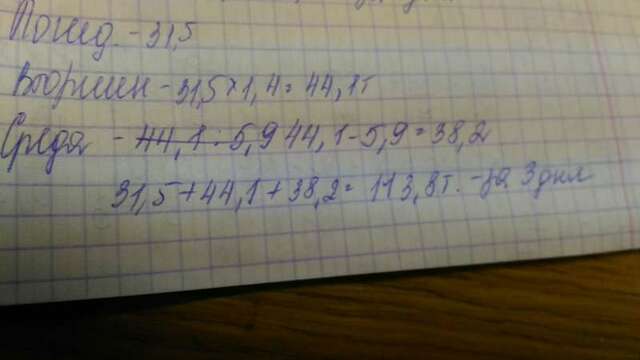 Понед. - 31,5
Вторник - 31,5 * 1,4 = 44,1т
Среда - 44,1 : 5,9 44,1 - 5,9 = 38,2
31,5 + 44,1 + 38,2 = 113,8т. - за 3 дня